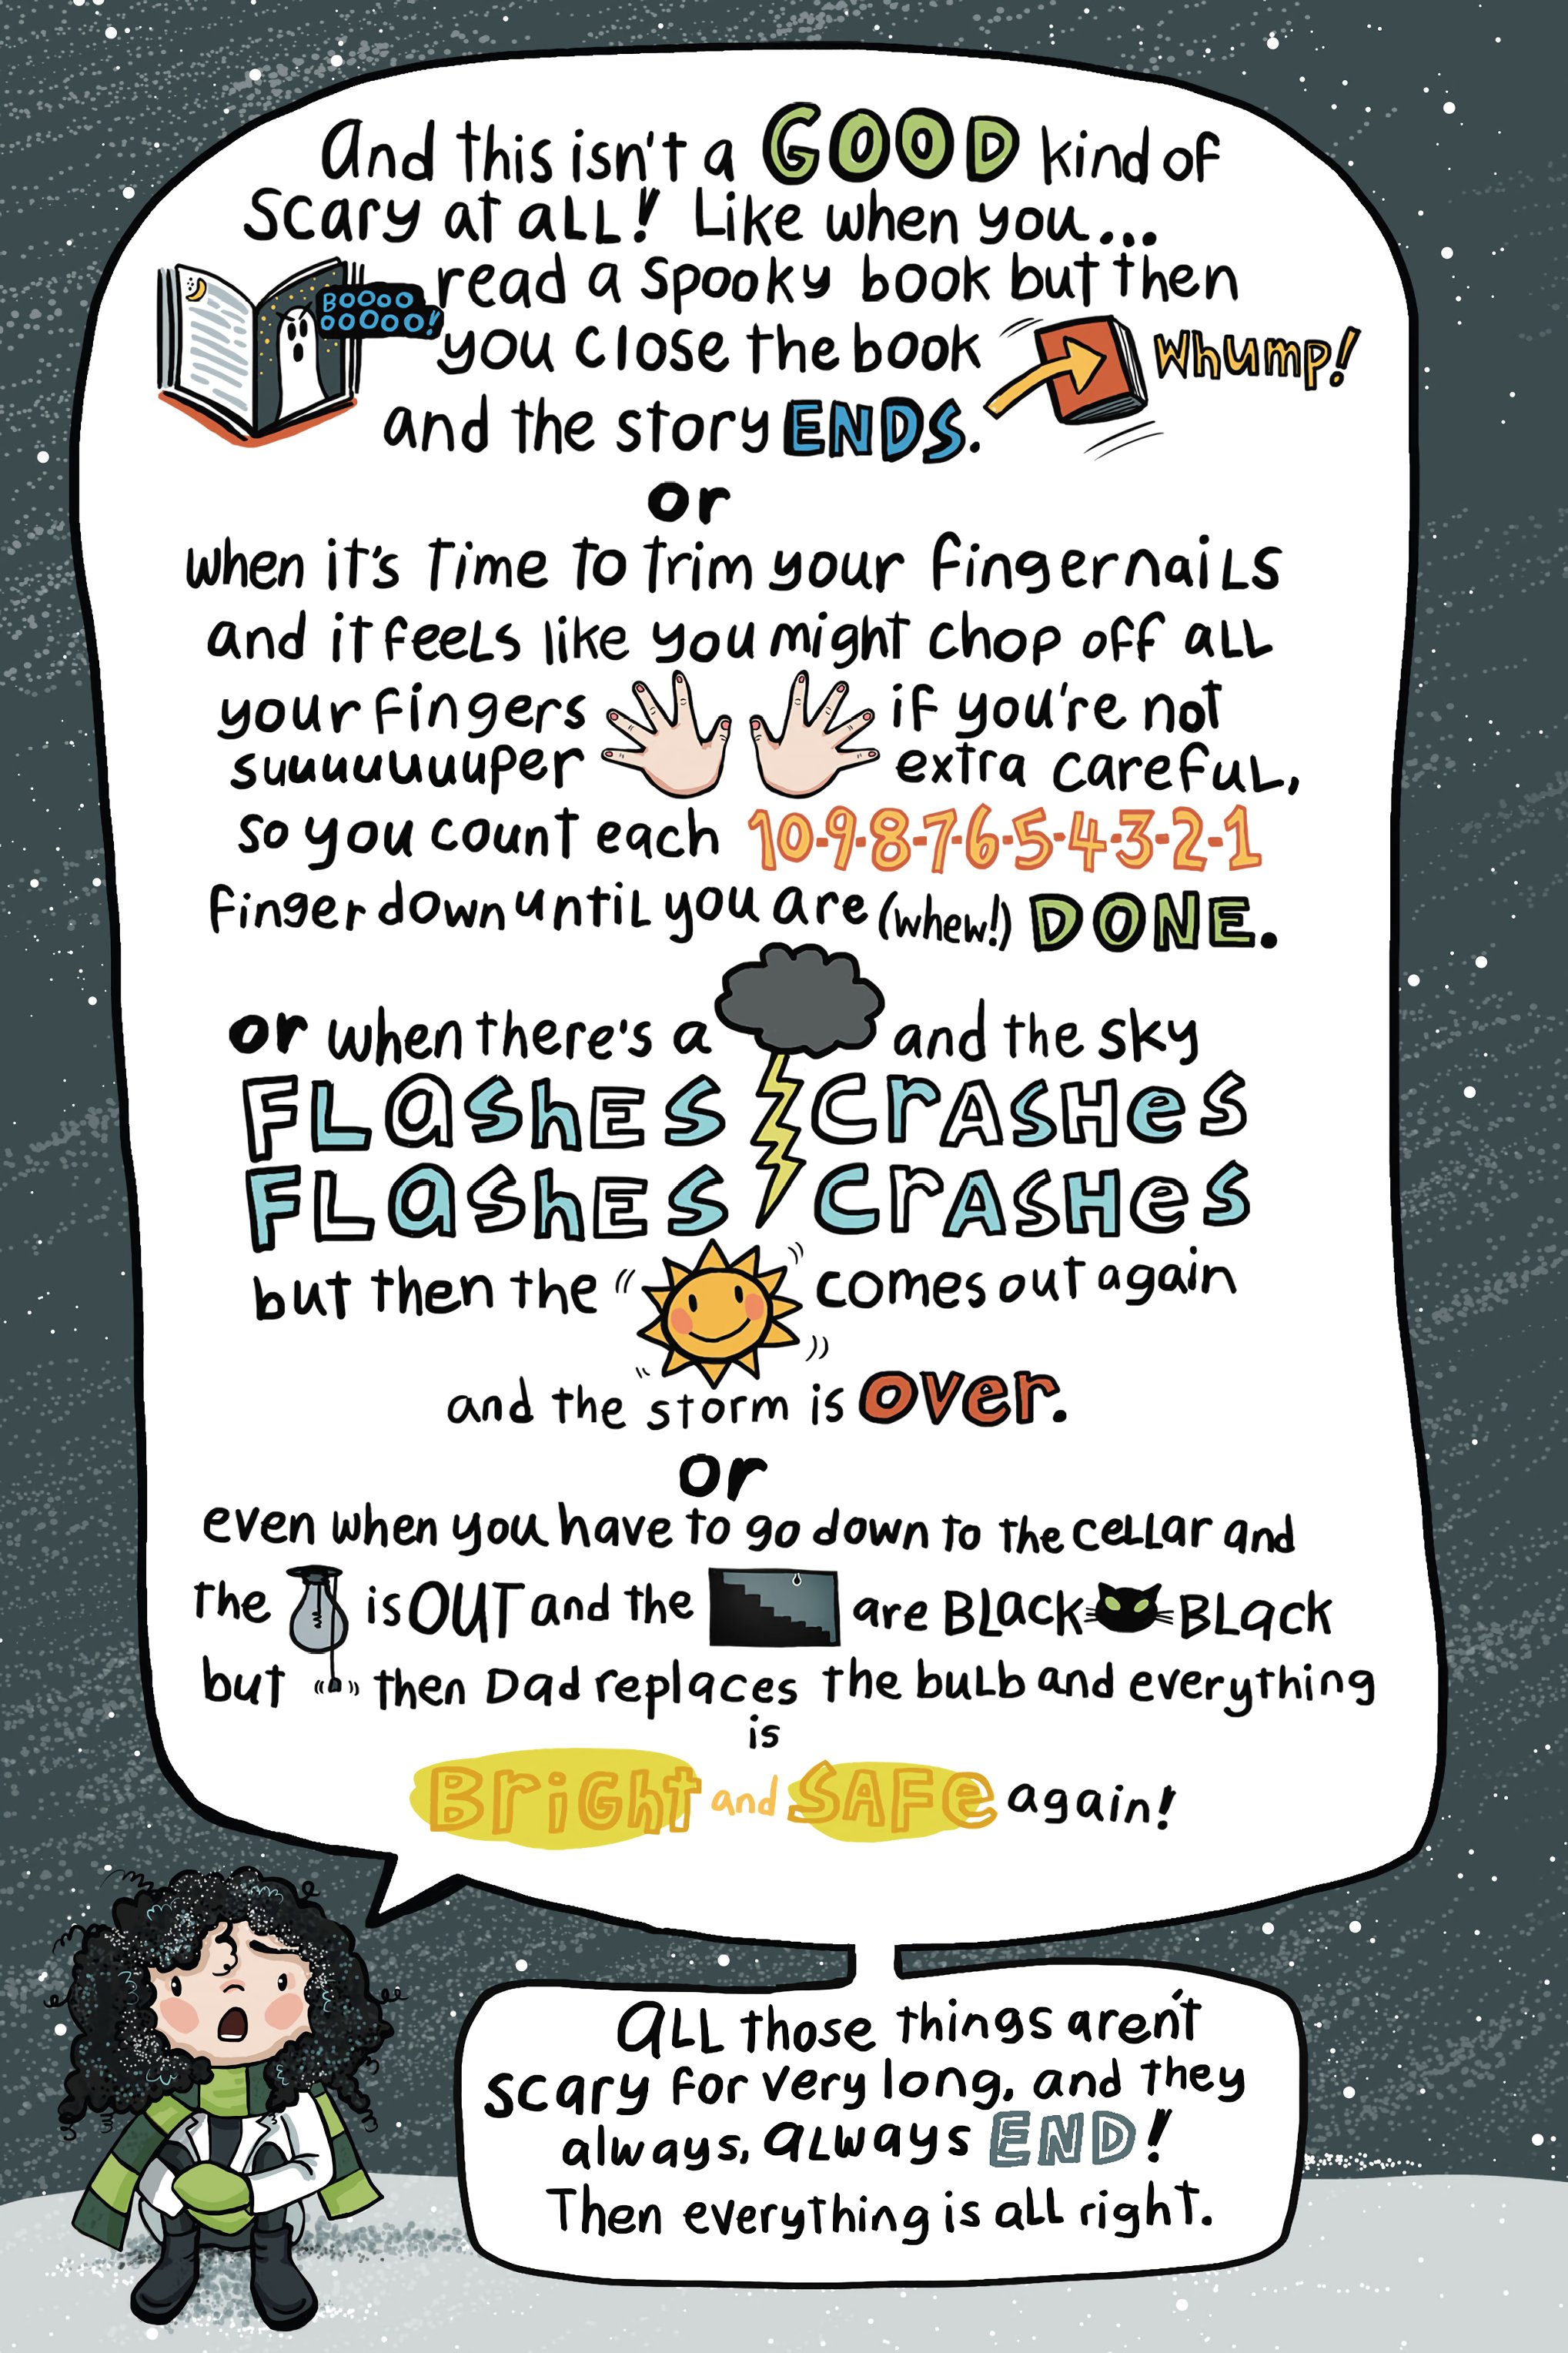 And this isn't a GOOD kind of
Scary at all! Like when you...
read a spooky book but then
BOOOO
OOOOO!
you close the book
Whump!
and the story ENDS.
or
when it's time to trim your fingernails
and it feels like you might chop off all
your fingers if you're not
suuuuuuuper extra careful,
so you count each 10-9-8-7-6-5-4-3-2-1
finger down until you are (whew!) DONE.
or when there's a and the sky
FLashES CrASHes
FLashES CrASHes
but then the comes out again
and the storm is over.
or
even when you have to go down to the cellar and
the is OUT and the are BLack BLack
but then Dad replaces the bulb and everything
is
Bright and SAFe again!
All those things aren't
scary for very long, and they
always, always END!
Then everything is all right.